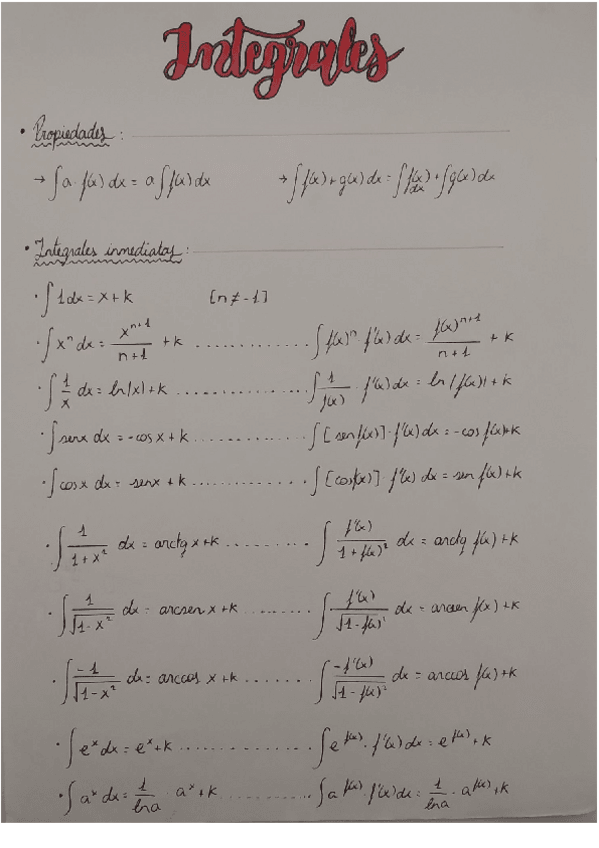 Integrales
• Propiedades :
→ ∫a · f(x) dx = a ∫f(x) dx → ∫f(x) + g(x) dx = ∫f(x) dx + ∫g(x) dx
• Integrales inmediatas :
· ∫1 dx = x + k [n ≠ -1]
· ∫xⁿ dx = xⁿ⁺¹/(n+1) + k ............ ∫f(x)ⁿ · f'(x) dx = f(x)ⁿ⁺¹/(n+1) + k
· ∫1/x dx = ln|x| + k ............ ∫1/f(x) · f'(x) dx = ln|f(x)| + k
· ∫senx dx = -cos x + k ............ ∫[sen f(x)] · f'(x) dx = -cos f(x) + k
· ∫cos x dx = senx + k ............ ∫[cos f(x)] · f'(x) dx = sen f(x) + k
· ∫1/(1+x²) dx = arctg x + k ......... ∫f'(x)/(1+f(x)²) dx = arctg f(x) + k
· ∫1/√(1-x²) dx = arcsen x + k ......... ∫f'(x)/√(1-f(x)²) dx = arcsen f(x) + k
· ∫-1/√(1-x²) dx = arccos x + k ....... ∫-f'(x)/√(1-f(x)²) dx = arccos f(x) + k
· ∫eˣ dx = eˣ + k ............ ∫e^f(x) · f'(x) dx = e^f(x) + k
· ∫aˣ dx = 1/lna · aˣ + k ......... ∫a^f(x) · f'(x) dx = 1/lna · a^f(x) + k